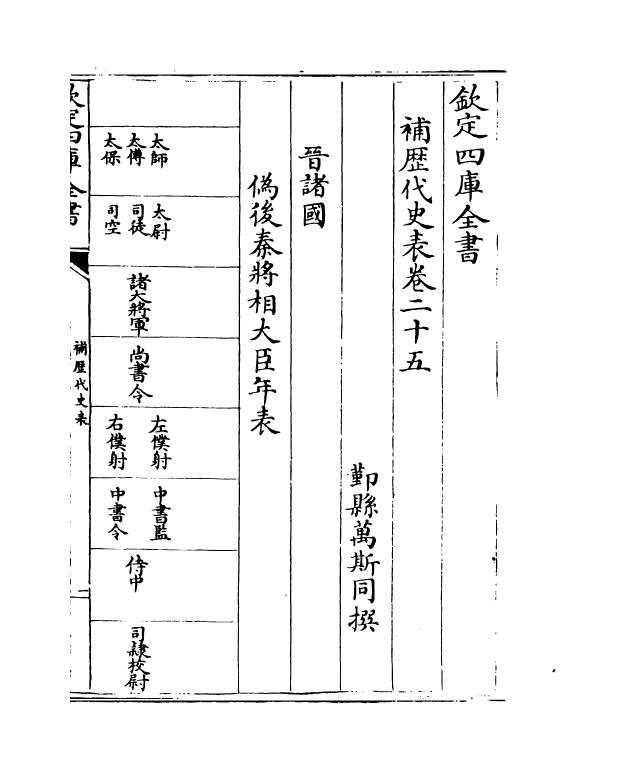 欽定四庫全書
補歴代史表卷二十五
鄞縣萬斯同撰
晉諸國
偽後秦將相大臣年表
太師
太傅
太保
太尉
司徒
司空
諸大將軍
尚書令
左僕射
右僕射
中書監
中書令
侍中
司隸校尉
欽定四庫全書
補歴代史表